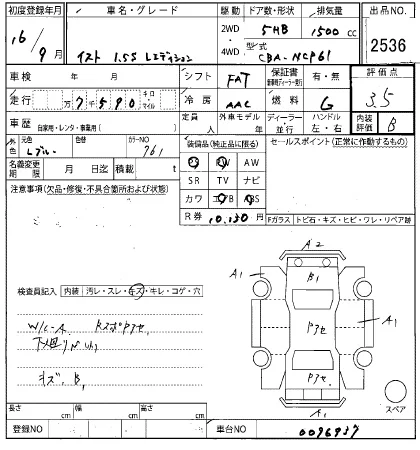 初度登録年月
16
9月
車名・グレード
イスト 1.5S Lエディション
駆動
2WD
4WD
ドア数・形状
5HB
排気量
1500 cc
型式
CBA-NCP61
出品NO.
2536
車検
年 月
シフト
FAT
保証書
有・無
評価点
3.5
走行
万7千590
キロ
マイル
冷房
AAC
燃料
G
車歴
自家用・レンタ・事業用( )
定員
人
外車モデル
年
ディーラー
並行
ハンドル
左・右
内装
評価
B
外色
元色
Lブルー
色替
カラーNO
761
装備品(純正品に限る)
PS PW AW
SR TV ナビ
カワ エアB ABS
セールスポイント(正常に作動するもの)
名義変更
期限
月 日迄
積載
t
R券
10,130 円
注意事項(欠品・修復・不具合箇所および状態)
Fガラス
トビ石・キズ・ヒビ・ワレ・リペア跡
検査員記入
内装
汚レ・スレ・キズ・キレ・コゲ・穴
W/C-A
キズ. B,
A2
A1
B1
A1
Pアセ
Pアセ.
A1
スペア
長さ cm
幅 cm
高さ cm
登録NO
車台NO
0096937